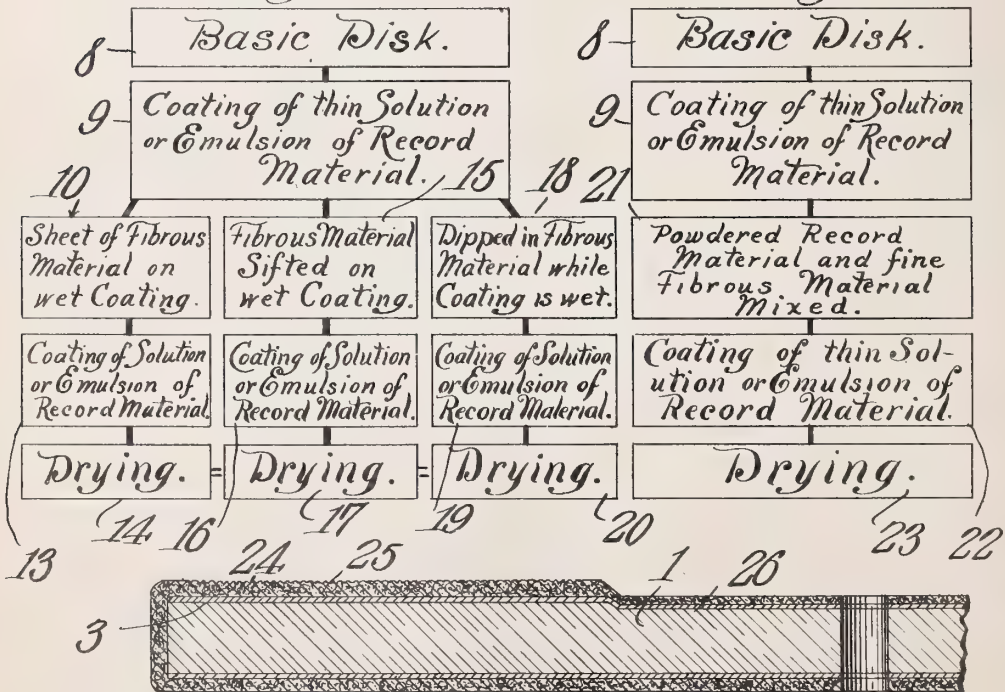 8
Basic Disk.
9
Coating of thin Solution
or Emulsion of Record
Material.
15
18
10
Sheet of Fibrous
Material on
wet Coating.
Fibrous Material
Sifted on
wet Coating.
Dipped in Fibrous
Material while
Coating is wet.
Coating of Solution
or Emulsion of
Record Material.
Coating of Solution
or Emulsion of
Record Material.
Coating of Solution
or Emulsion of
Record Material.
Drying.
=
Drying.
=
Drying.
13
14
16
17
19
20
8
Basic Disk.
9
Coating of thin Solution
or Emulsion of Record
Material.
21
Powdered Record
Material and fine
Fibrous Material
Mixed.
Coating of thin Sol-
ution or Emulsion of
Record Material.
Drying.
23
22
24
25
1
26
3